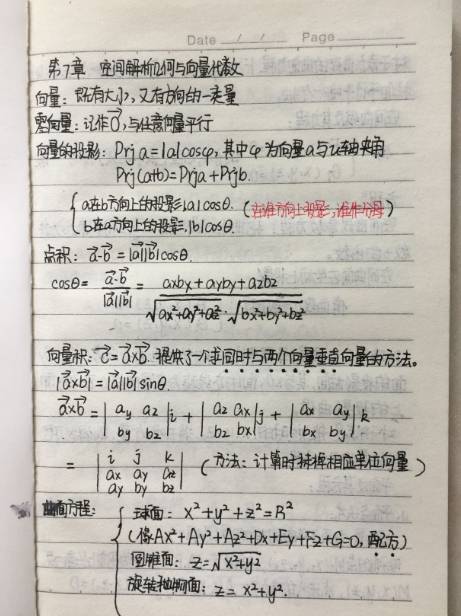 Date / / Page
第7章 空间解析几何与向量代数
向量:既有大小,又有方向的一类量
零向量:记作0⃗,与任意向量平行
向量的投影:Prj a=|a|cosφ,其中φ为向量a与u轴夹角
Prj(a+b)=Prja+Prjb.
{ a在b方向上的投影,|a|cosθ. (在谁方向上投影,谁作分母)
b在a方向上的投影,|b|cosθ.
点积: a⃗·b⃗=|a⃗||b⃗|cosθ.
cosθ= a⃗·b⃗ / |a⃗||b⃗| = axbx+ayby+azbz / √ax²+ay²+az²·√bx²+by²+bz²
向量积: c⃗=a⃗×b⃗ 提供了一个求同时与两个向量垂直向量的方法。
|a⃗×b⃗|=|a⃗||b⃗|sinθ.
a⃗×b⃗=| ay az by bz |i+| az ax bz bx |j+| ax ay bx by |k
=| i j k ax ay az bx by bz | (方法:计算时抹掉相应单位向量)
曲面方程: { 球面: x²+y²+z²=R²
(像Ax²+Ay²+Az²+Dx+Ey+Fz+G=0,配方)
圆锥面: z=√x²+y²
旋转抛物面: z=x²+y².